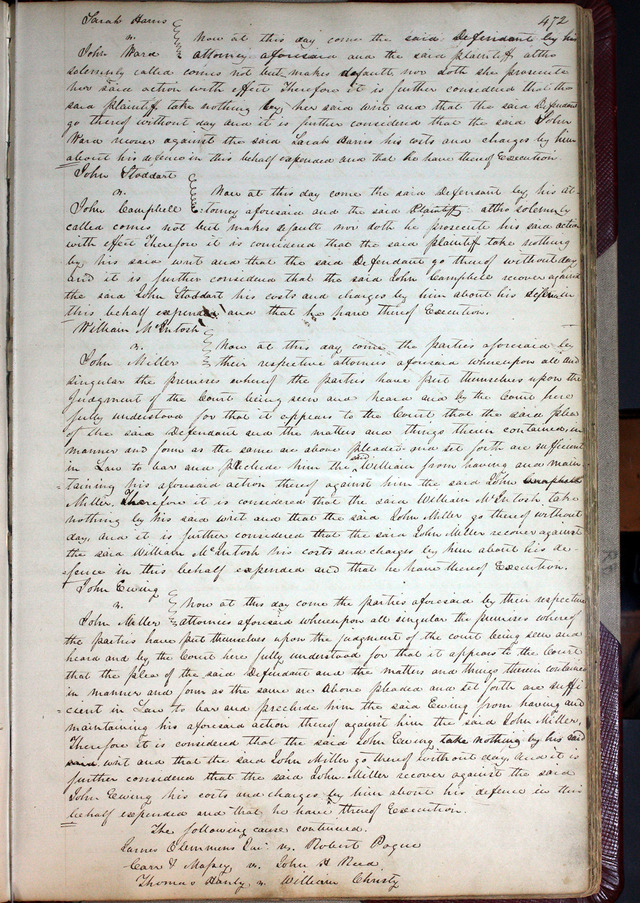 472
Sarah Harris
vs. Now at this day come the said Defendant by his
John Ward attorney aforesaid and the said plaintiff altho
solemnly called comes not but makes default nor doth she prosecute
her said action with effect Therefore it is further considered that the
said plaintiff take nothing by her said writ and that the said Defendant
go thereof without day and it is further considered that the said John
Ward recover against the said Sarah Harris his costs and charges by him
about his defence in this behalf expended and that he have thereof Execution.
John Stoddart
vs. Now at this day come the said Defendant by his at-
John Campbell torney aforesaid and the said Plaintiff altho solemnly
called comes not but makes default nor doth he prosecute his said action
with effect Therefore it is considered that the said plaintiff take nothing
by his said writ and that the said Defendant go thereof without day
and it is further considered that the said John Campbell recover against
the said John Stoddart his costs and charges by him about his defence in
this behalf expended and that he have thereof Execution.
William McIntosh
vs. Now at this day come the parties aforesaid by
John Miller their respective attornies aforesaid whereupon all and
singular the premises whereof the parties have put themselves upon the
Judgment of the Court being seen and heard and by the Court here
fully understood for that it appears to the Court that the said plea
of the said Defendant and the matters and things therein contained in
manner and form as the same are above pleaded and set forth are sufficient
in Law to bar and preclude him the said William from having and main
taining his aforesaid action thereof against him the said John
Miller, Therefore it is considered that the said William McIntosh take
nothing by his said writ and that the said John Miller go thereof without
day, and it is further considered that the said John Miller recover against
the said William McIntosh his costs and charges by him about his de-
fence in this behalf expended and that he have thereof Execution.
John Ewing
vs. Now at this day come the parties aforesaid by their respective
John Miller attornies aforesaid whereupon all singular the premises whereof
the parties have put themselves upon the judgment of the court being seen and
heard and by the Court here fully understood for that it appears to the Court
that the plea of the said Defendant and the matters and things therein contained
in manner and form as the same are above pleaded and set forth are suffi
cient in Law to bar and preclude him the said Ewing from having and
maintaining his aforesaid action thereof against him the said John Miller,
Therefore it is considered that the said John Ewing take nothing by his said
writ and that the said John Miller go thereof without day, and it is
further considered that the said John Miller recover against the said
John Ewing his costs and charges by him about his defence in this
behalf expended and that he have thereof Execution.
The following cause continued.
James Clemmens vs. Robert Pogue
Carr & Massey vs. John H Reed
Thomas Hanly vs. William Christy